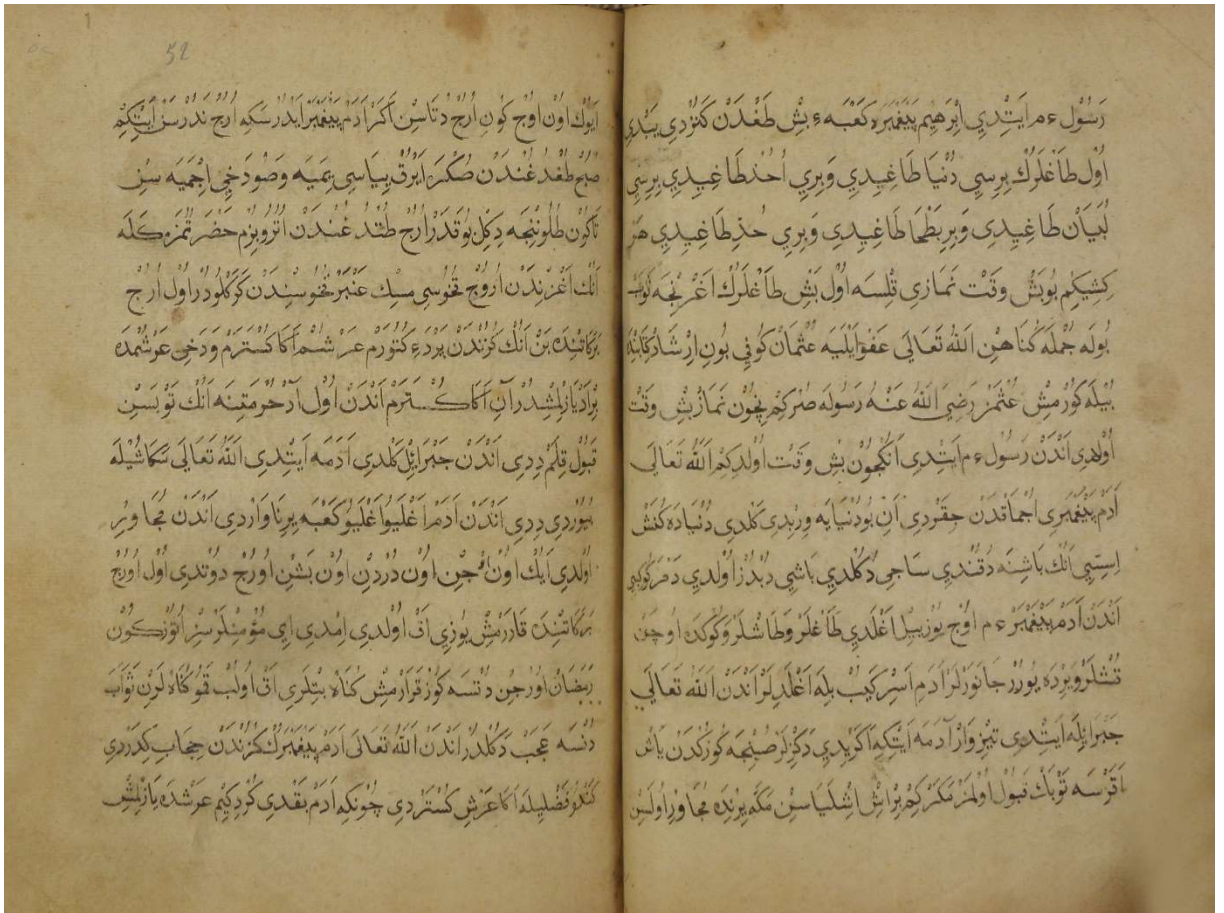 رَسُولْ ءم اَيْتْدِي اِبْرَهِيمْ پَيْغَمْبَرْ كَعْبَهءِ بَشْ طَغْدَنْ كَتُرْدِي يَبْدِي
اُولْ طَاغْلَرُكْ بِرِسِي دُنْيَا طَاغِيدِي وَبِرِي اُحُدْ طَاغِيدِي بِرِسِي
لُبْيَانْ طَاغِيدِي وَبِرِ بَطْحَا طَاغِيدِي وَبِرِي طَاغِيدِي هَرْ
كِشِيكِمْ بُو بَشْ وَقْتْ نَمَازِي قِلْسَه اُولْ بَشْ طَاغْلَرُكْ اَغْرِنْجَه
بُولَه جُمْلَه كُنَاهِنْ اَللّٰهُ تَعَالَى عَفْوْ اَيْلَيَه عُثْمَانْ كُوفِي بُونِ اِرْشَادْ كِتَابِنْدَه
بُيْلَه كُورْمِشْ عُثْمَنْ رَضِيَ اللّٰهُ عَنْهُ رَسُولَه صُرَرْكِمْ نِچُونْ نَمَازْ بَشْ وَقْتْ
اُولْدِي اَنْدَنْ رَسُولْ ءم اَيْتْدِي اَنُكْچُونْ بَشْ وَقْتْ اُولْدِكِمْ اَللّٰهُ تَعَالَى
اَدَمْ پَيْغَمْبَرِي اُجْمَاقْدَنْ چِقَرْدِي اَنِ بُو دُنْيَايَه وِرِبْدِي كَلْدِي دُنْيَادَه كُنَشْ
اِسِسِي اَنُكْ بَاشِنَه دُقُنْدِي سَاچِي دُكُلْدِي بَاشِي اُولْدِي
اَنْدَنْ اَدَمْ پَيْغَمْبَرْ ءم اُوچْ يُوزْ يِيلْ اَغْلَدِي طَاغْلَرْ وَطَاشْلَرْ وَكُوكْدَه اُوچَنْ
قُشْلَرْ وَيَرْدَه يُورُرْ جَانَوَرْلَرْ اَدَمِ اَسِرْكَيُبْ بِلَه اَغْلَدِلَرْ اَنْدَنْ اَللّٰهُ تَعَالَى
جَبْرَائِلَه اَيْتْدِي تِيزْ وَارْ آدَمَه اَيْتْكِه اَكَرْ يَدِي دَكِزْلَرْ صُيِنْجَه كُوزُكْدَنْ يَاشْ
اَقَرْسَه تَوْبَكْ قَبُولْ اُولْمَزْ مَكَرْكِمْ بِرْ اِيشْ اِشْلَيَاسِنْ مَكَّه يِرِنْدَه مُجَاوِرْ اُولَسِنْ
اَيُوكْ اُونْ اُوچْ كُونِ اُرُجْ دُتَاسِنْ اَكَرْ اَدَمْ پَيْغَمْبَرْ اَيْدُرْسَكِه اُرُجْ نَدُرْ سَنْ اَيْتْكِمْ
صُبْحْ طُغْدُغُنْدَنْ صُكْرَه اَيْرُقْ يِيَاسِي يِمَيَه وَصُو دَخِي اِچْمَيَه سِنْ
تَا كُونْ طُلُونِنْجَه دِكِلْ بُو قَدَرْ اُرُجْ طُتْدُغُنْدَنْ اُتُرُو بِزُمْ حَضْرَتُمُزَه كَلَه
اَنُكْ اَغْزِنْدَنْ اُرُوجْ قُخُوسِي مِسْكْ عَنْبَرْ قُخُوسِنْدَنْ كَرَكْلُودُرْ اُولْ اُرُجْ
بَرَكَاتِنْدَه بَنْ اَنُكْ كُزُنْدَنْ پَرْدَءِ كُتُورَمْ عَرْشُمْ اَكَا كُسْتَرَمْ وَدَخِي عَرْشُمْدَه
بِرْ اَدْ يَازِلْمِشْدُرْ اَنِ اَكَا كُسْتَرَمْ اَنْدَنْ اُولْ آدْ حُرْمَتِنَه اَنُكْ تَوْبَسِنْ
قَبُولْ قِلَمْ دِدِي اَنْدَنْ جَبْرَائِلْ كَلْدِي اَدَمَه اَيْتْدِي اَللّٰهُ تَعَالَى سَكَا شُيْلَه
بُيُورْدِي دِدِي اَنْدَنْ اَدَمْ اَغْلَيُو اَغْلَيُو كَعْبَه يِرِنَا وَارْدِي اَنْدَنْ مُجَاوِرْ
اُولْدِي اَيُكْ اُونْ اُوچِنْ اُونْ دُرْدِنْ اُونْ بَشِنْ اُورُجْ دُوتْدِي اُولْ اُورُجْ
بَرَكَاتِنْدَه قَارَرْمِشْ يُوزِي اَقْ اُولْدِي اِمْدِي اَيْ مُؤْمِنْلَرْ سِزْ اُتُوزْ كُونْ
رَمَضَانْ اُورُجِنْ دُتْسَه كُوزْ قَرَارْمِشْ كُنَاهْ بِتِلَرِي اَقْ اُولُبْ قَمُو كُنَاهْلَرِنْ ثَوَابْ
دُنْسَه عَجَبْ دَكُلْدُرْ اَنْدَنْ اَللّٰهُ تَعَالَى اَدَمْ پَيْغَمْبَرُكْ كُزُنْدَنْ حِجَابْ كِدَرْدِي
كَنْدُو فَضْلِيلَه اَكَا عَرْشِ كُسْتَرْدِي چُونْكِه اَدَمْ بَقْدِي كُرْدِكِيمْ عَرْشْدَه يَازِلْمِشْ